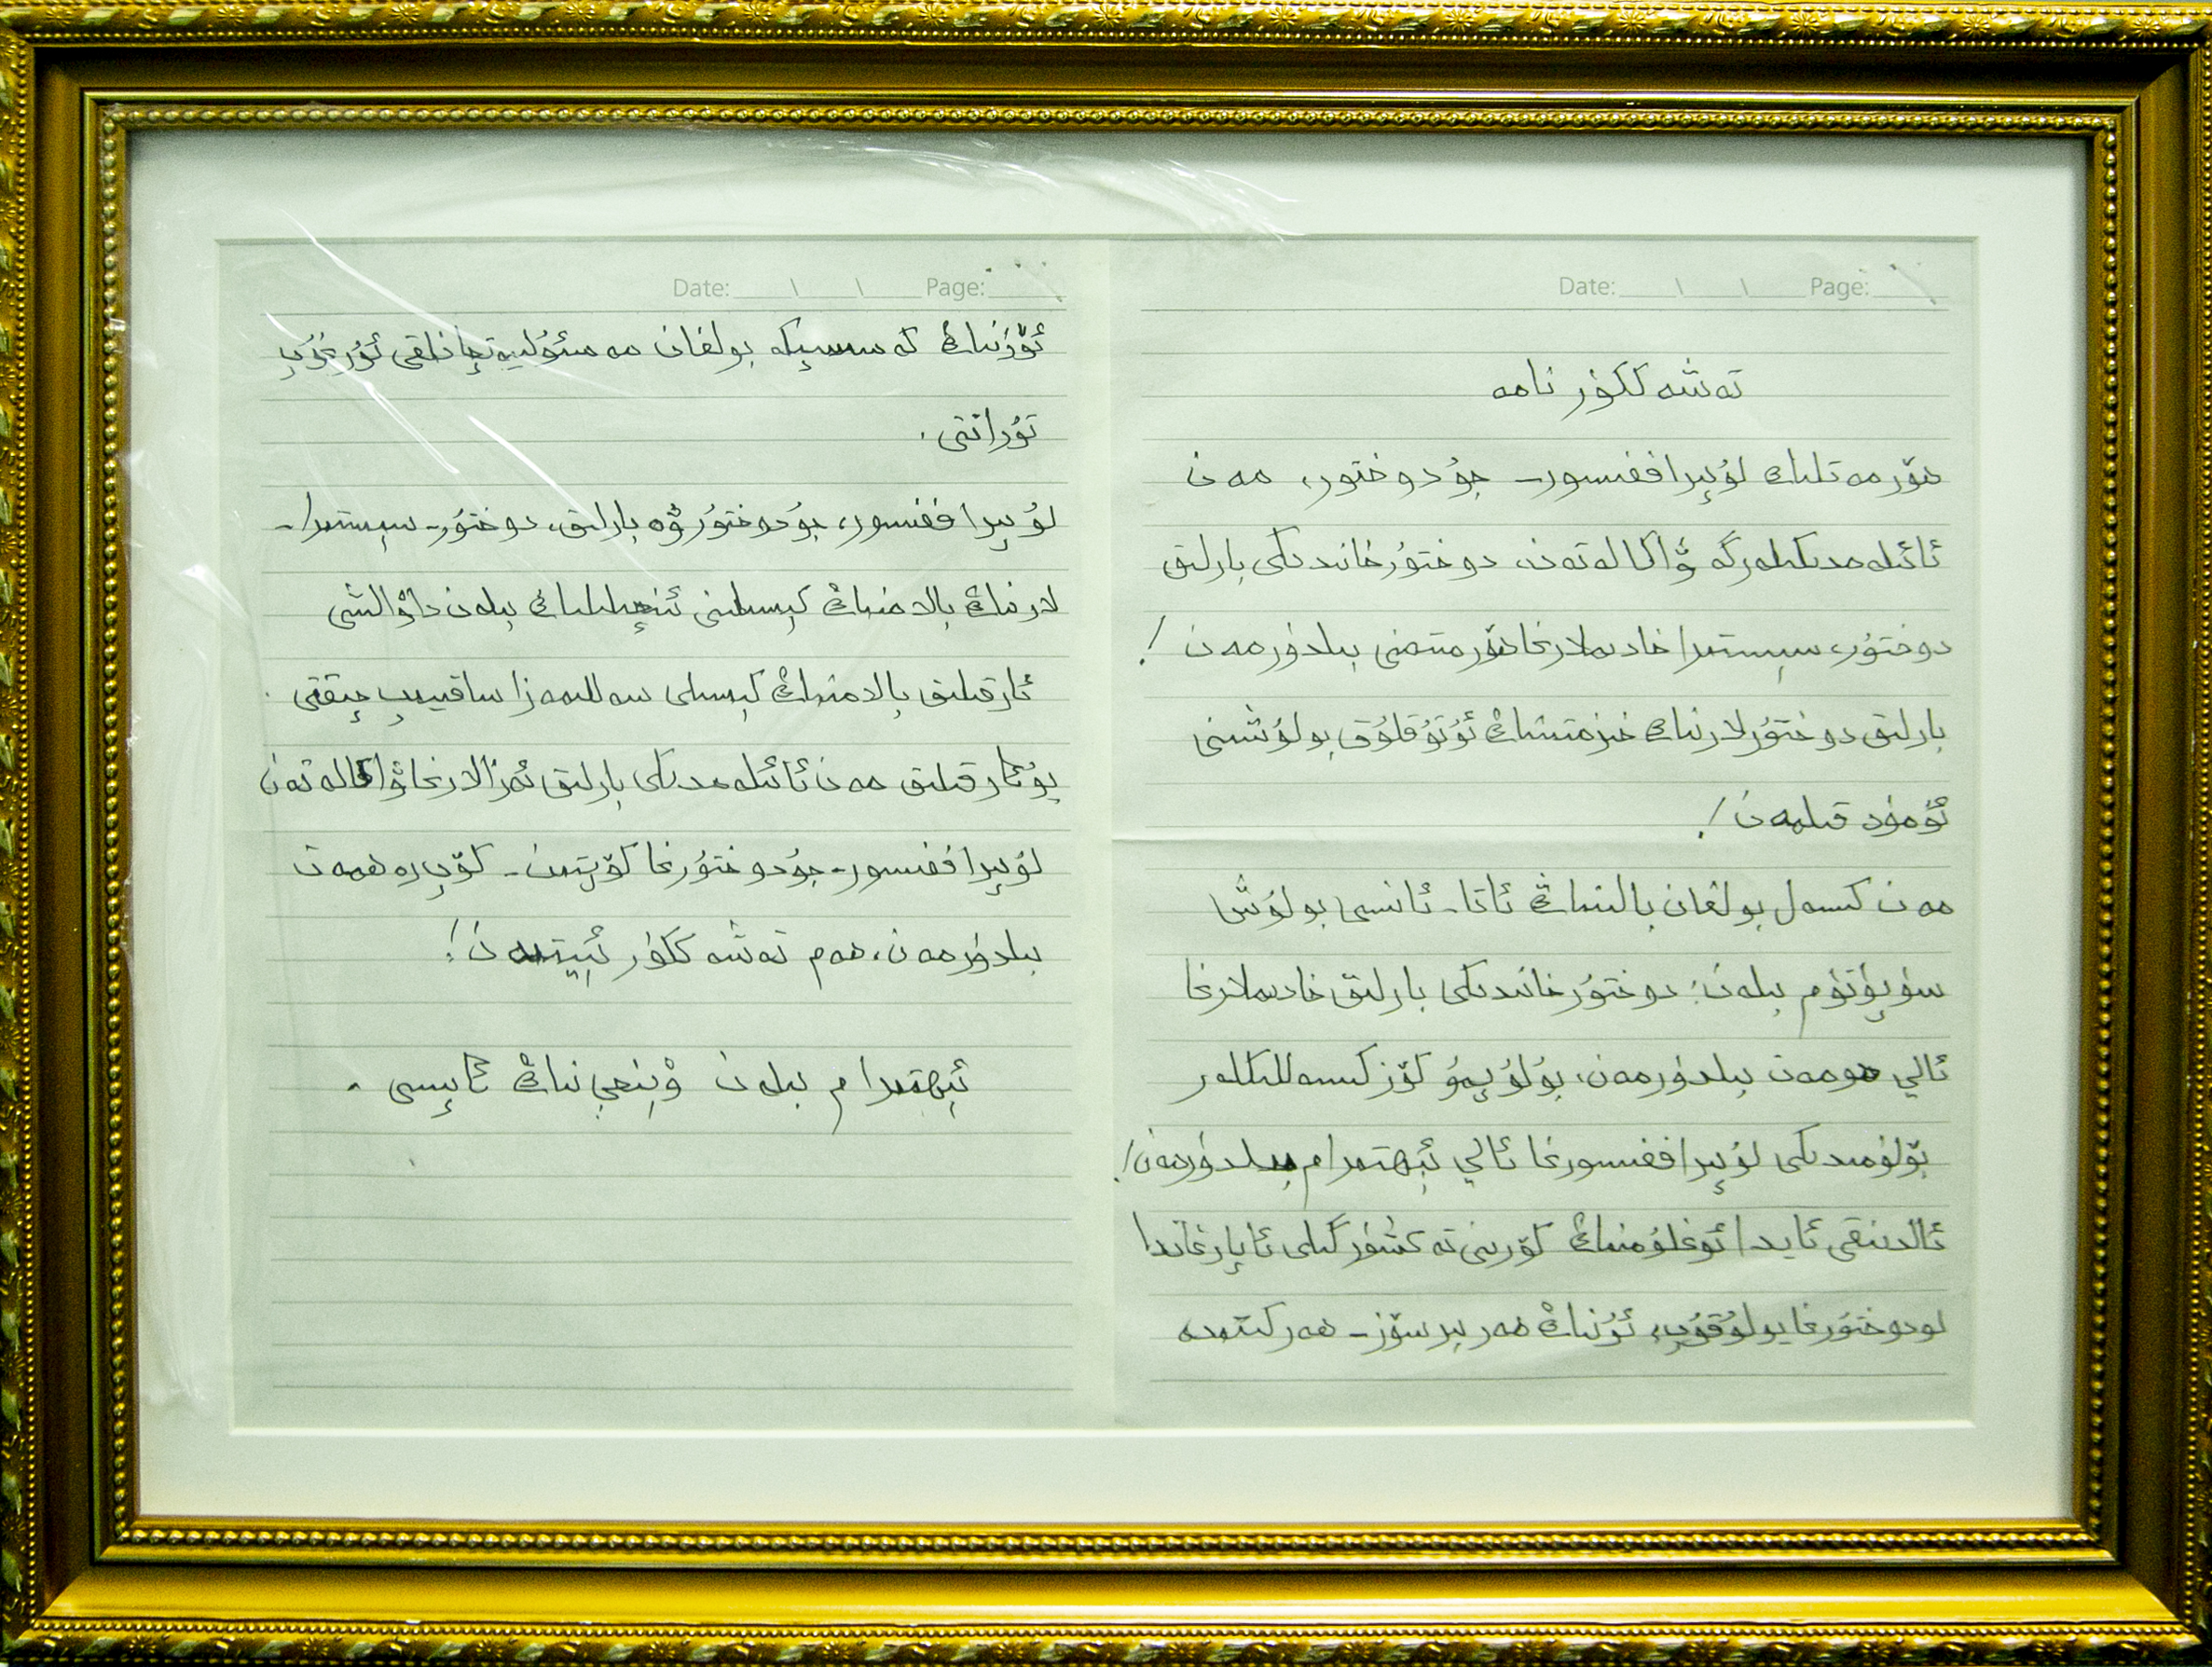 Date: \ \ Page:
تەشەككۈر نامە
ھۆرمەتلىك لۇپىرافىسسور- جۇدوختور، مەن
ئائىلەمدىكىلەرگە ۋاكالەتەن دوختۇرخانىدىكى بارلىق
دوختۇر، سېستىرا خادىملارغا ھۆرمىتىمنى بىلدۈرمەن!
بارلىق دوختۇرلارنىڭ خىزمىتىنىڭ ئۇتۇقلۇق بولۇشىنى
ئۈمۈد قىلمەن!
مەن كىسەل بولغان بالىنىڭ ئاتا- ئانىسى بولۇش
سۈپۈتۈم بىلەن دوختۇرخانىدىكى بارلىق خادىملارغا
ئالىي بىلدۈرمەن، بۇلۇپمۇ كۆز كىسەللىكلەر
بۆلۈمىدىكى لۇپىرافىسسورغا ئالىي ئېھتىرام بىلدۈرمەن!
ئالدىنقى ئايدا ئوغلۇمنىڭ كۆزىنى تەكشۈرگىلى ئاپارغاندا
لودوختۇرغا يولۇقۇپ، ئۇنىڭ ھەر بىر سۆز- ھەركىتىدە
Date: \ \ Page:
ئۆزىنىڭ كەسىپىگە بولغان مەسئۇلىيەتچانلىقى ئۇرغۇپ
تۇراتتى.
لۇپىرافىسسور، جۇدوختۇر ۋە بارلىق دوختۇر- سېستىرا-
لارنىڭ بالامنىڭ كېسىلىنى ئىنچىكىلىك بىلەن داۋالىشى
ئارقىلىق بالامنىڭ كېسىلى سەللىمازا ساقىيىپ چىقتى.
بۇ ئارقىلىق مەن ئائىلەمدىكى بارلىق ئەزالارغا ۋاكالەتەن
لۇپىرافىسسور- جۇدوختۇرغا كۆپتىن- كۆپ رەھمەت
بىلدۈرمەن، ھەم تەشەككۈر ئېيتىمەن!
ئېھتىرام بىلەن ئاپىسى.